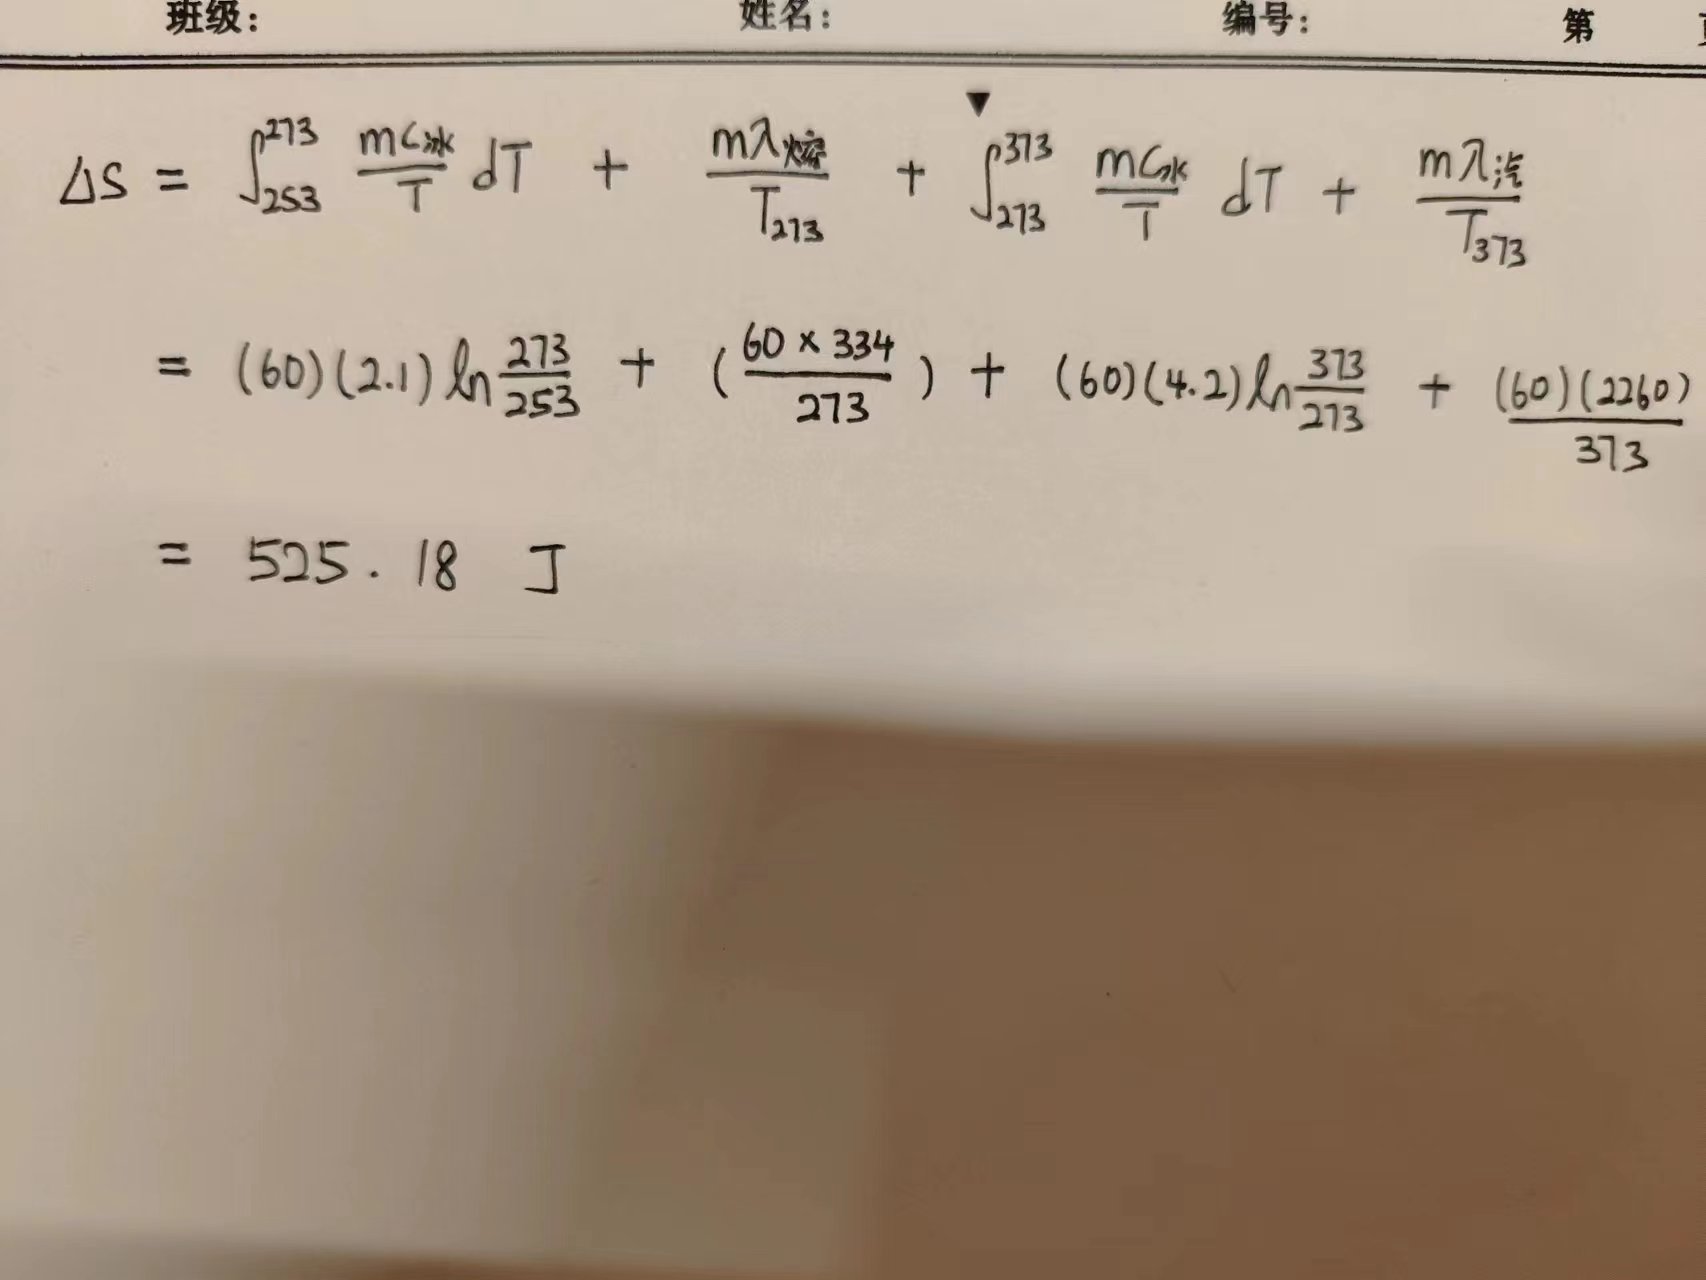 班级: 姓名: 编号: 第
▼
ΔS = ∫₂₅₃²⁷³ mC冰/T dT + mλ熔/T₂₇₃ + ∫₂₇₃³⁷³ mC水/T dT + mλ汽/T₃₇₃
= (60)(2.1) ln 273/253 + (60 × 334/273) + (60)(4.2) ln 373/273 + (60)(2260)/373
= 525.18 J